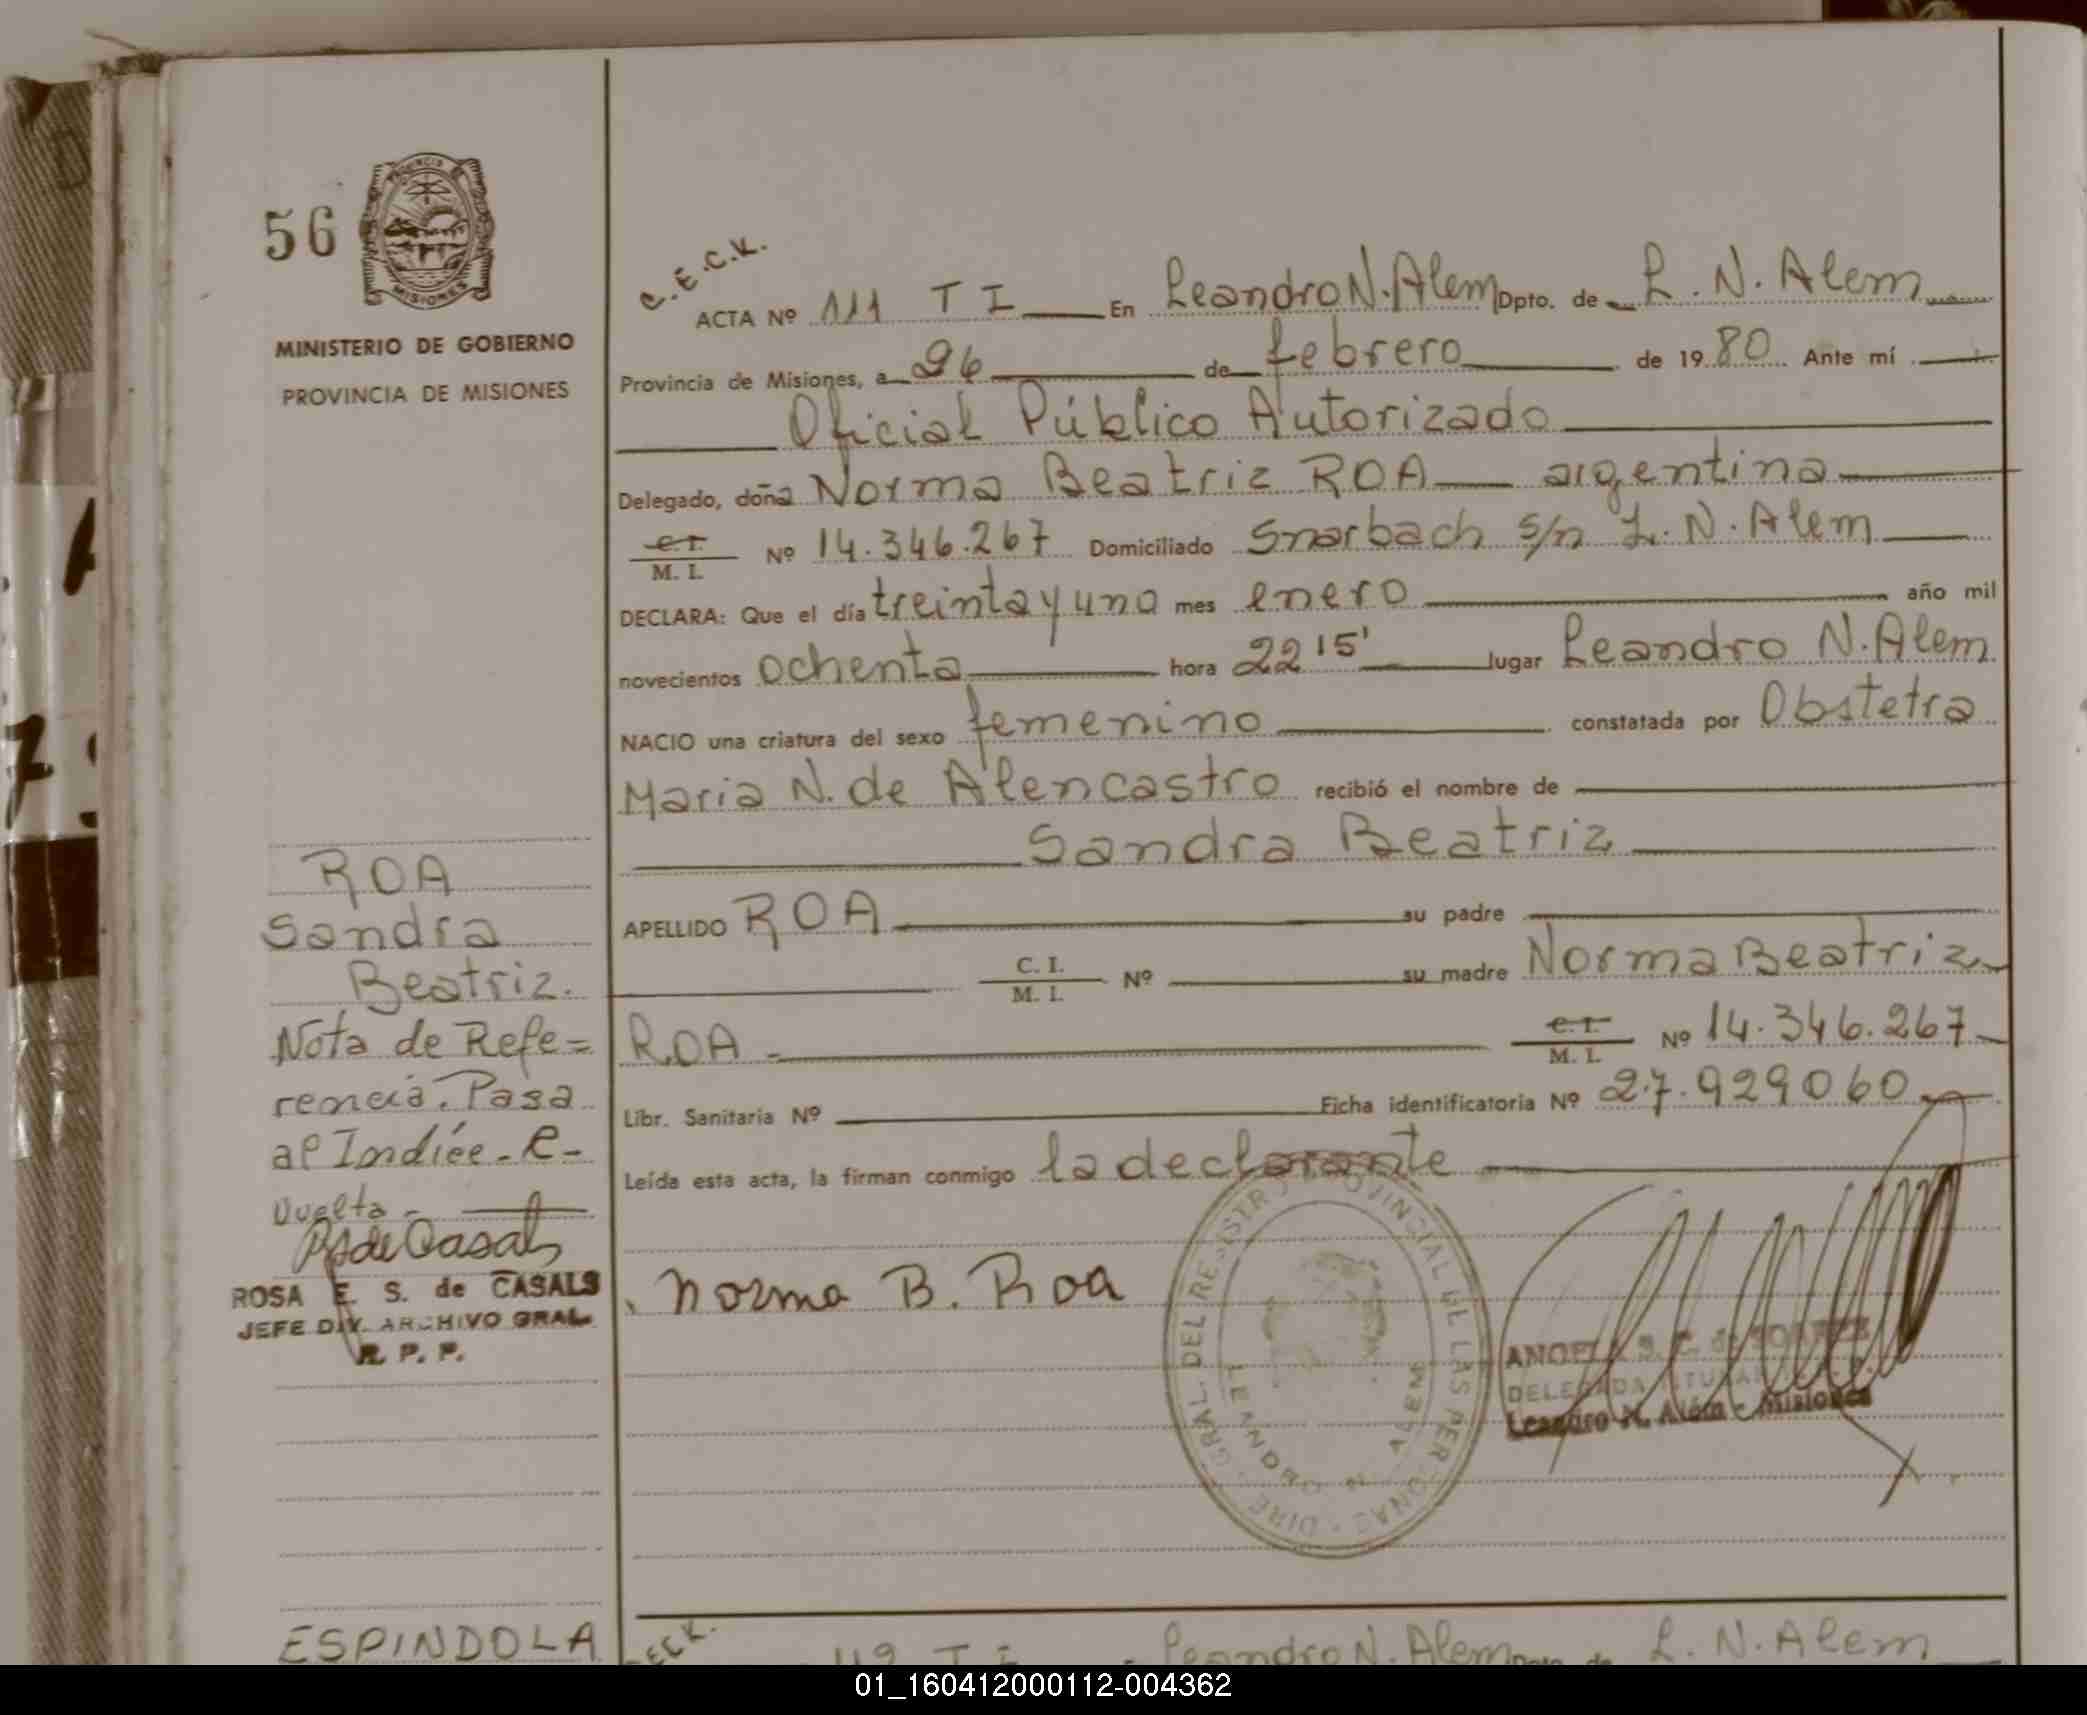 56
PROVINCIA
MISIONES
MINISTERIO DE GOBIERNO
PROVINCIA DE MISIONES
C.E.C.K.
ACTA Nº 111 T I En Leandro N. Alem Dpto. de L. N. Alem
Provincia de Misiones, a 26 de febrero de 1980 Ante mí
Oficial Público Autorizado
Delegado, doña Norma Beatriz ROA argentina
C.I.
M. I. Nº 14.346.267 Domiciliado Snarbach s/n L. N. Alem
DECLARA: Que el día treinta y uno mes enero año mil
novecientos ochenta hora 22 15' lugar Leandro N. Alem
NACIO una criatura del sexo femenino constatada por Obstetra
Maria N. de Alencastro recibió el nombre de
Sandra Beatriz
APELLIDO ROA su padre
C. I.
M. I. Nº su madre Norma Beatriz
ROA - C.I.
M. I. Nº 14.346.267
Libr. Sanitaria Nº Ficha identificatoria Nº 27.929060
Leída esta acta, la firman conmigo la declarante
Norma B. Roa
DIRE. GRAL. DEL REGISTRO PROVINCIAL DE LAS PERSONAS
LEANDRO N. ALEM
DELEGADA TITULAR
Leandro N. Alem - Misiones
ROA
Sandra
Beatriz.
Nota de Refe=
rencia. Pasa
al Indice - R -
Vuelta -
RSdeCasals
ROSA E. S. de CASALS
JEFE DIV. ARCHIVO GRAL.
R. P. P.
ESPINDOLA
ECK.
T I Leandro N. Alem Dpto. de L. N. Alem
01_160412000112-004362